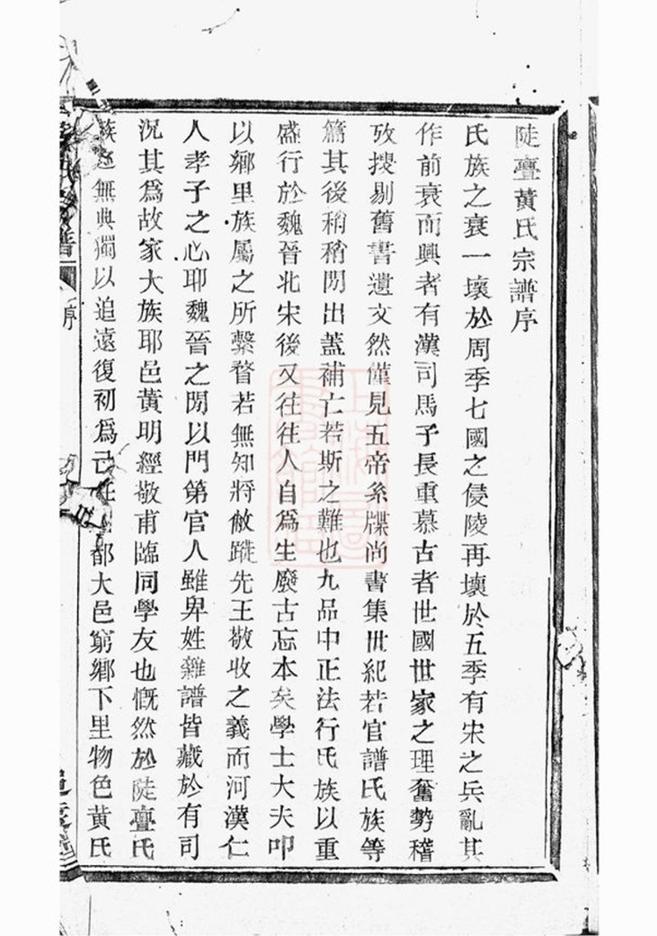 陡亹黃氏宗譜序
氏族之衰一壞於周季七國之侵陵再壞於五季有宋之兵亂其
作前衰而興者有漢司馬子長重慕古者世國世家之理奮勢稽
攷搜剔舊書遺文然僅見五帝系牒尚書集世紀若官譜氏族等
篇其後稍稍閒出蓋補亡若斯之難也九品中正法行氏族以重
盛行於魏晉北宋後又往往人自為生廢古忘本矣學士大夫叩
以鄉里族屬之所繫瞀若無知將敝蹤先王敬收之義而河漢仁
人孝子之心耶魏晉之閒以門第官人雖卑姓雜譜皆藏於有司
況其為故家大族耶邑黃明經敬甫臨同學友也慨然於陡亹氏
族之無典獨以追遠復初為己任都大邑窮鄉下里物色黃氏
序